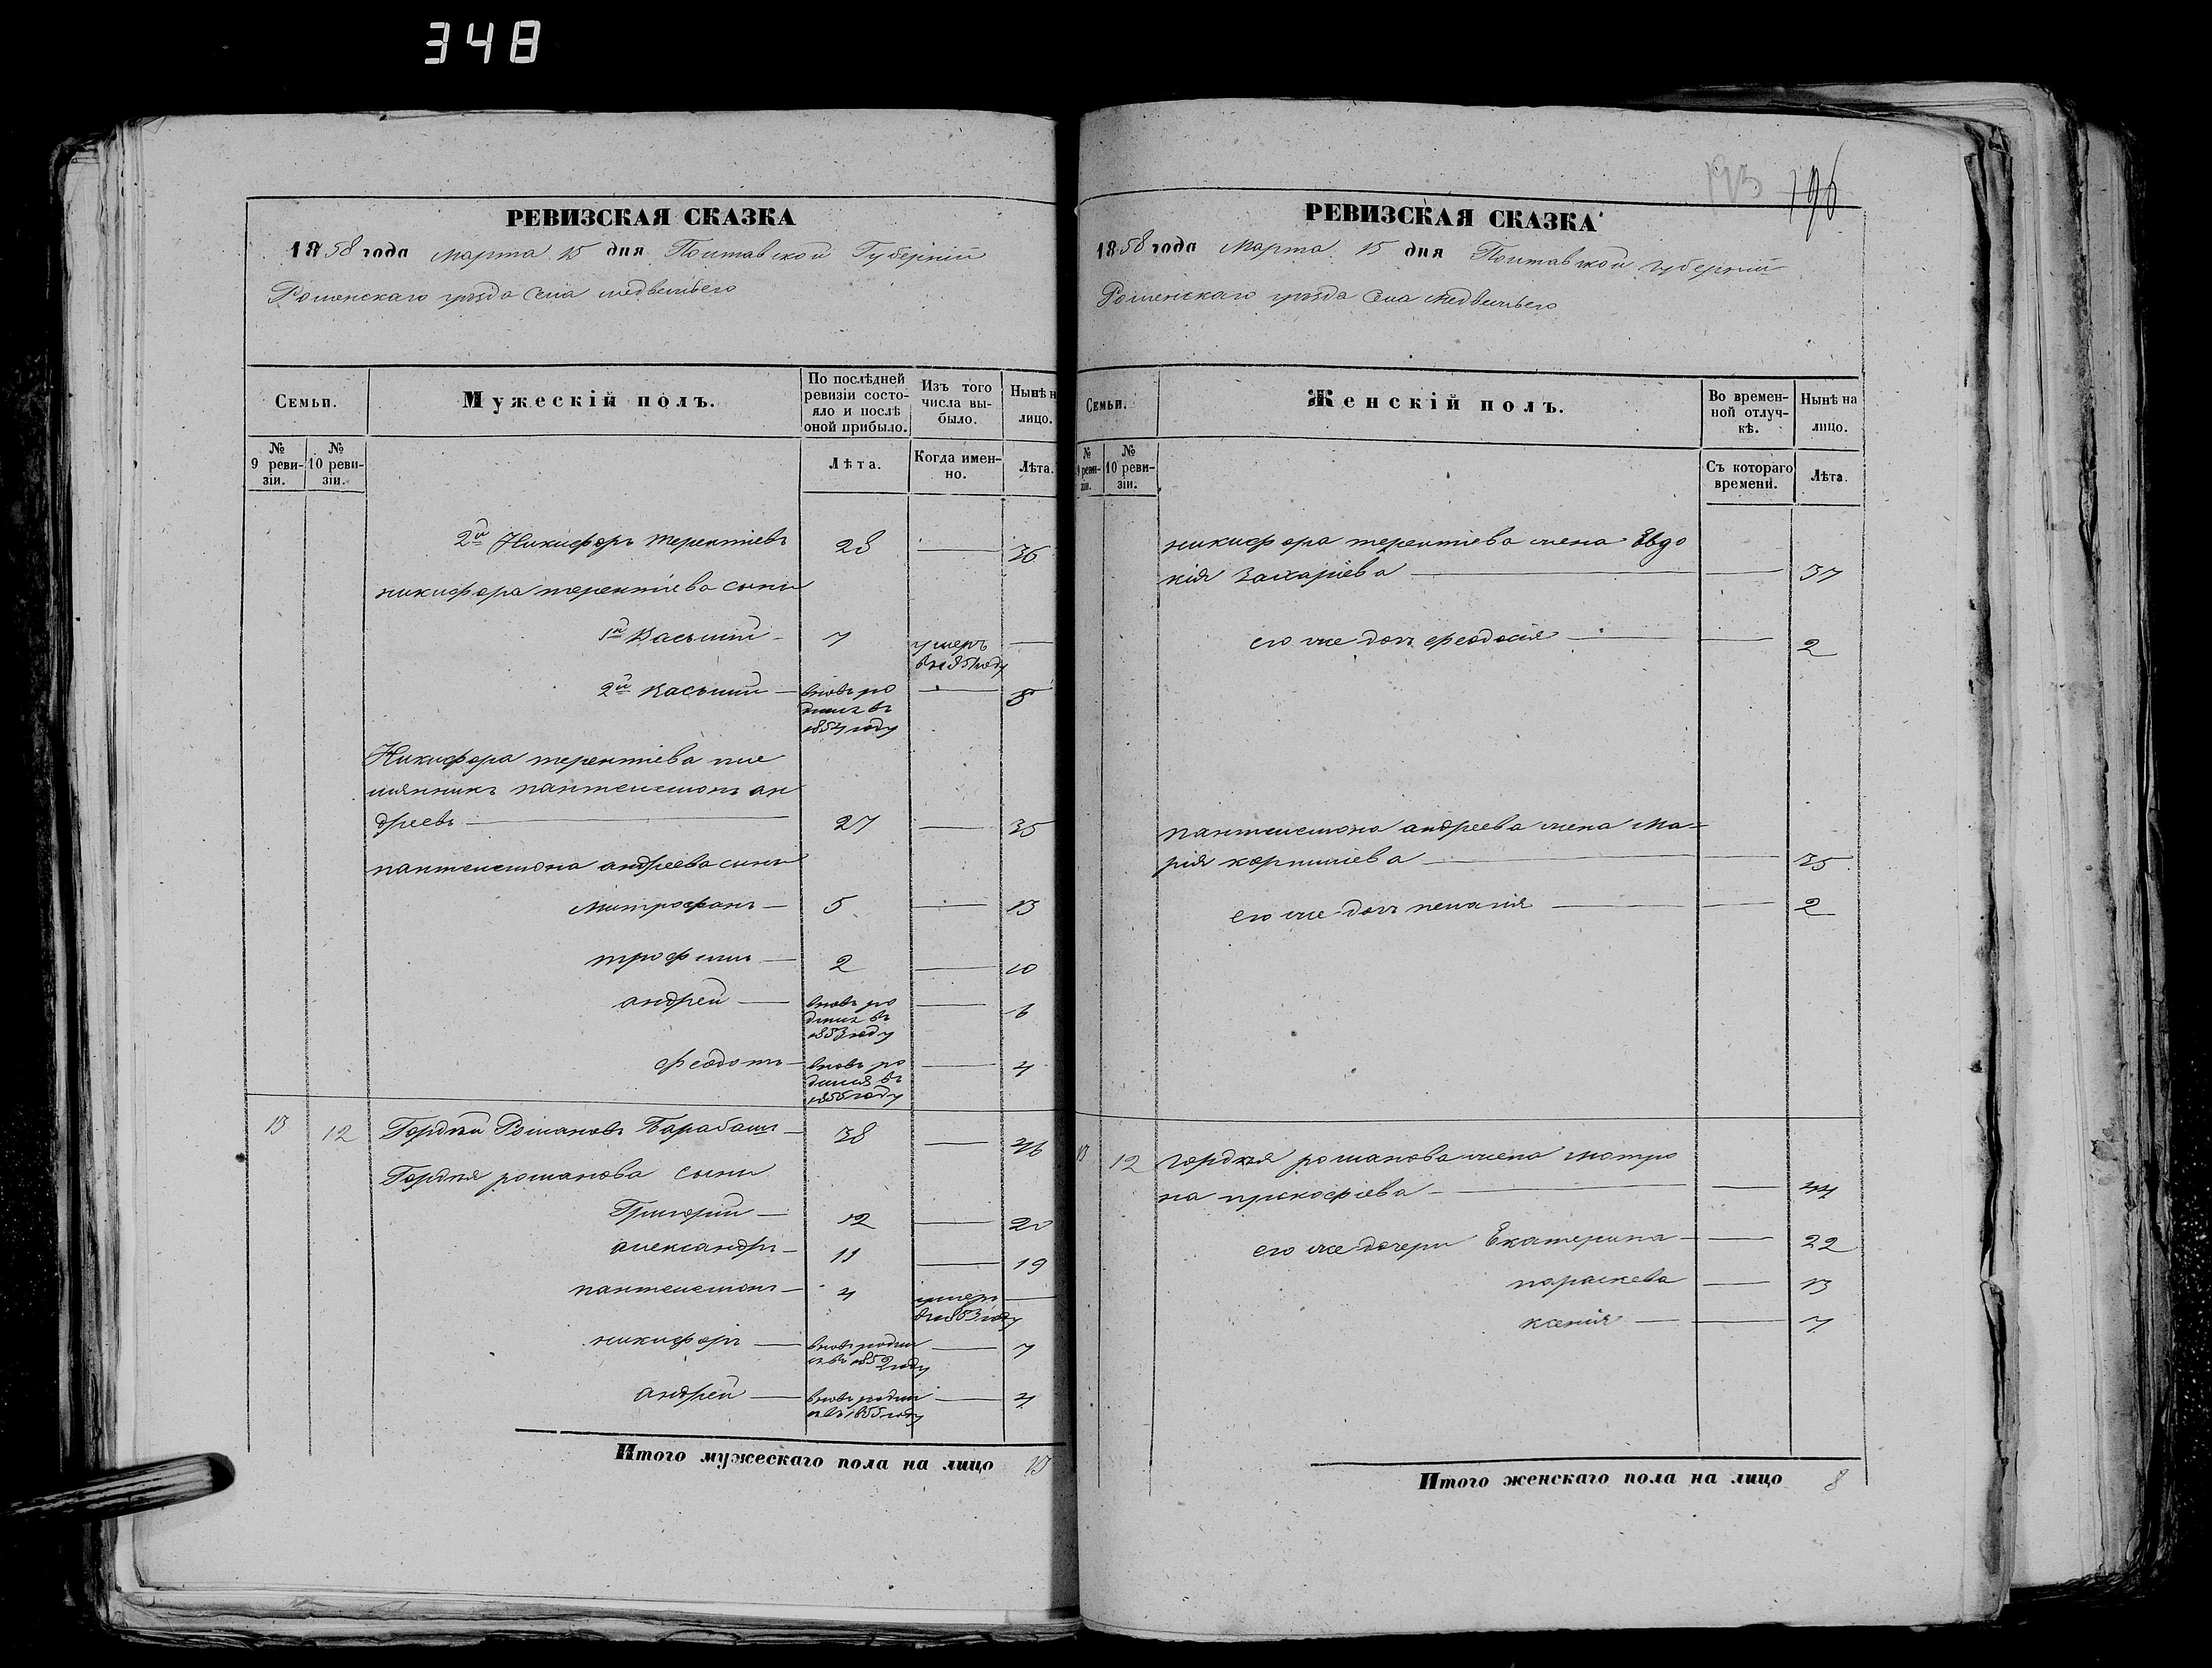 348
РЕВИЗСКАЯ СКАЗКА
1858 года марта 15 дня Полтавской Губерніи
Роменскаго уѣзда Села медвежьего
Семьи.
Мужескій полъ.
По послѣдней ревизіи состояло и послѣ оной прибыло.
Изъ того числа выбыло.
Нынѣ н лицо.
№ 9 ревизіи.
№ 10 ревизіи.
Лѣта.
Когда именно.
Лѣта.
2й Никифоръ терентіевъ 28 — 36
никифора терентіева сыны
1й Касьянъ — 7 умеръ въ 1851 году —
2й Касьянъ — вновь родился въ 1854 году — 8
Никифора терентіева пле
мянникъ пантелемонъ ан
дреевъ — 27 — 35
пантелемона андреева сыны
митрофанъ — 5 — 13
трофимъ — 2 — 10
андрей — вновь родился въ 1853 году — 6
феодотъ — вновь родился въ 1855 году — 4
13 12 Гордѣй Романовъ Барабаш — 38 — 46
Гордѣя романова сыны
Григорій — 12 — 20
александръ — 11 — 19
пантелемонъ — 4 умеръ въ 1853 году —
никифоръ — вновь родился въ 1852 году — 7
андрей — вновь родился въ 1855 году — 4
Итого мужескаго пола на лицо 13
193 196
РЕВИЗСКАЯ СКАЗКА
1858 года Марта 15 дня Полтавской губерніи
Роменскаго уѣзда Села медвежьего
Семьи.
Женскій полъ.
Во временной отлучкѣ.
Нынѣ на лицо.
№ 9 ревизіи.
№ 10 ревизіи.
Съ котораго времени.
Лѣта.
никифора терентіева жена Евдо
кія Захаріева — — 37
его же дочь феодосія — — 2
пантелемона андреева жена ма-
рія корниліева — — 35
его же дочь пелагія — — 2
13 12 гордѣя романова жена мотро
на прокофіева — — 44
его же дочери Екатерина — — 22
параскева — 13
ксенія — — 7
Итого женскаго пола на лицо 8